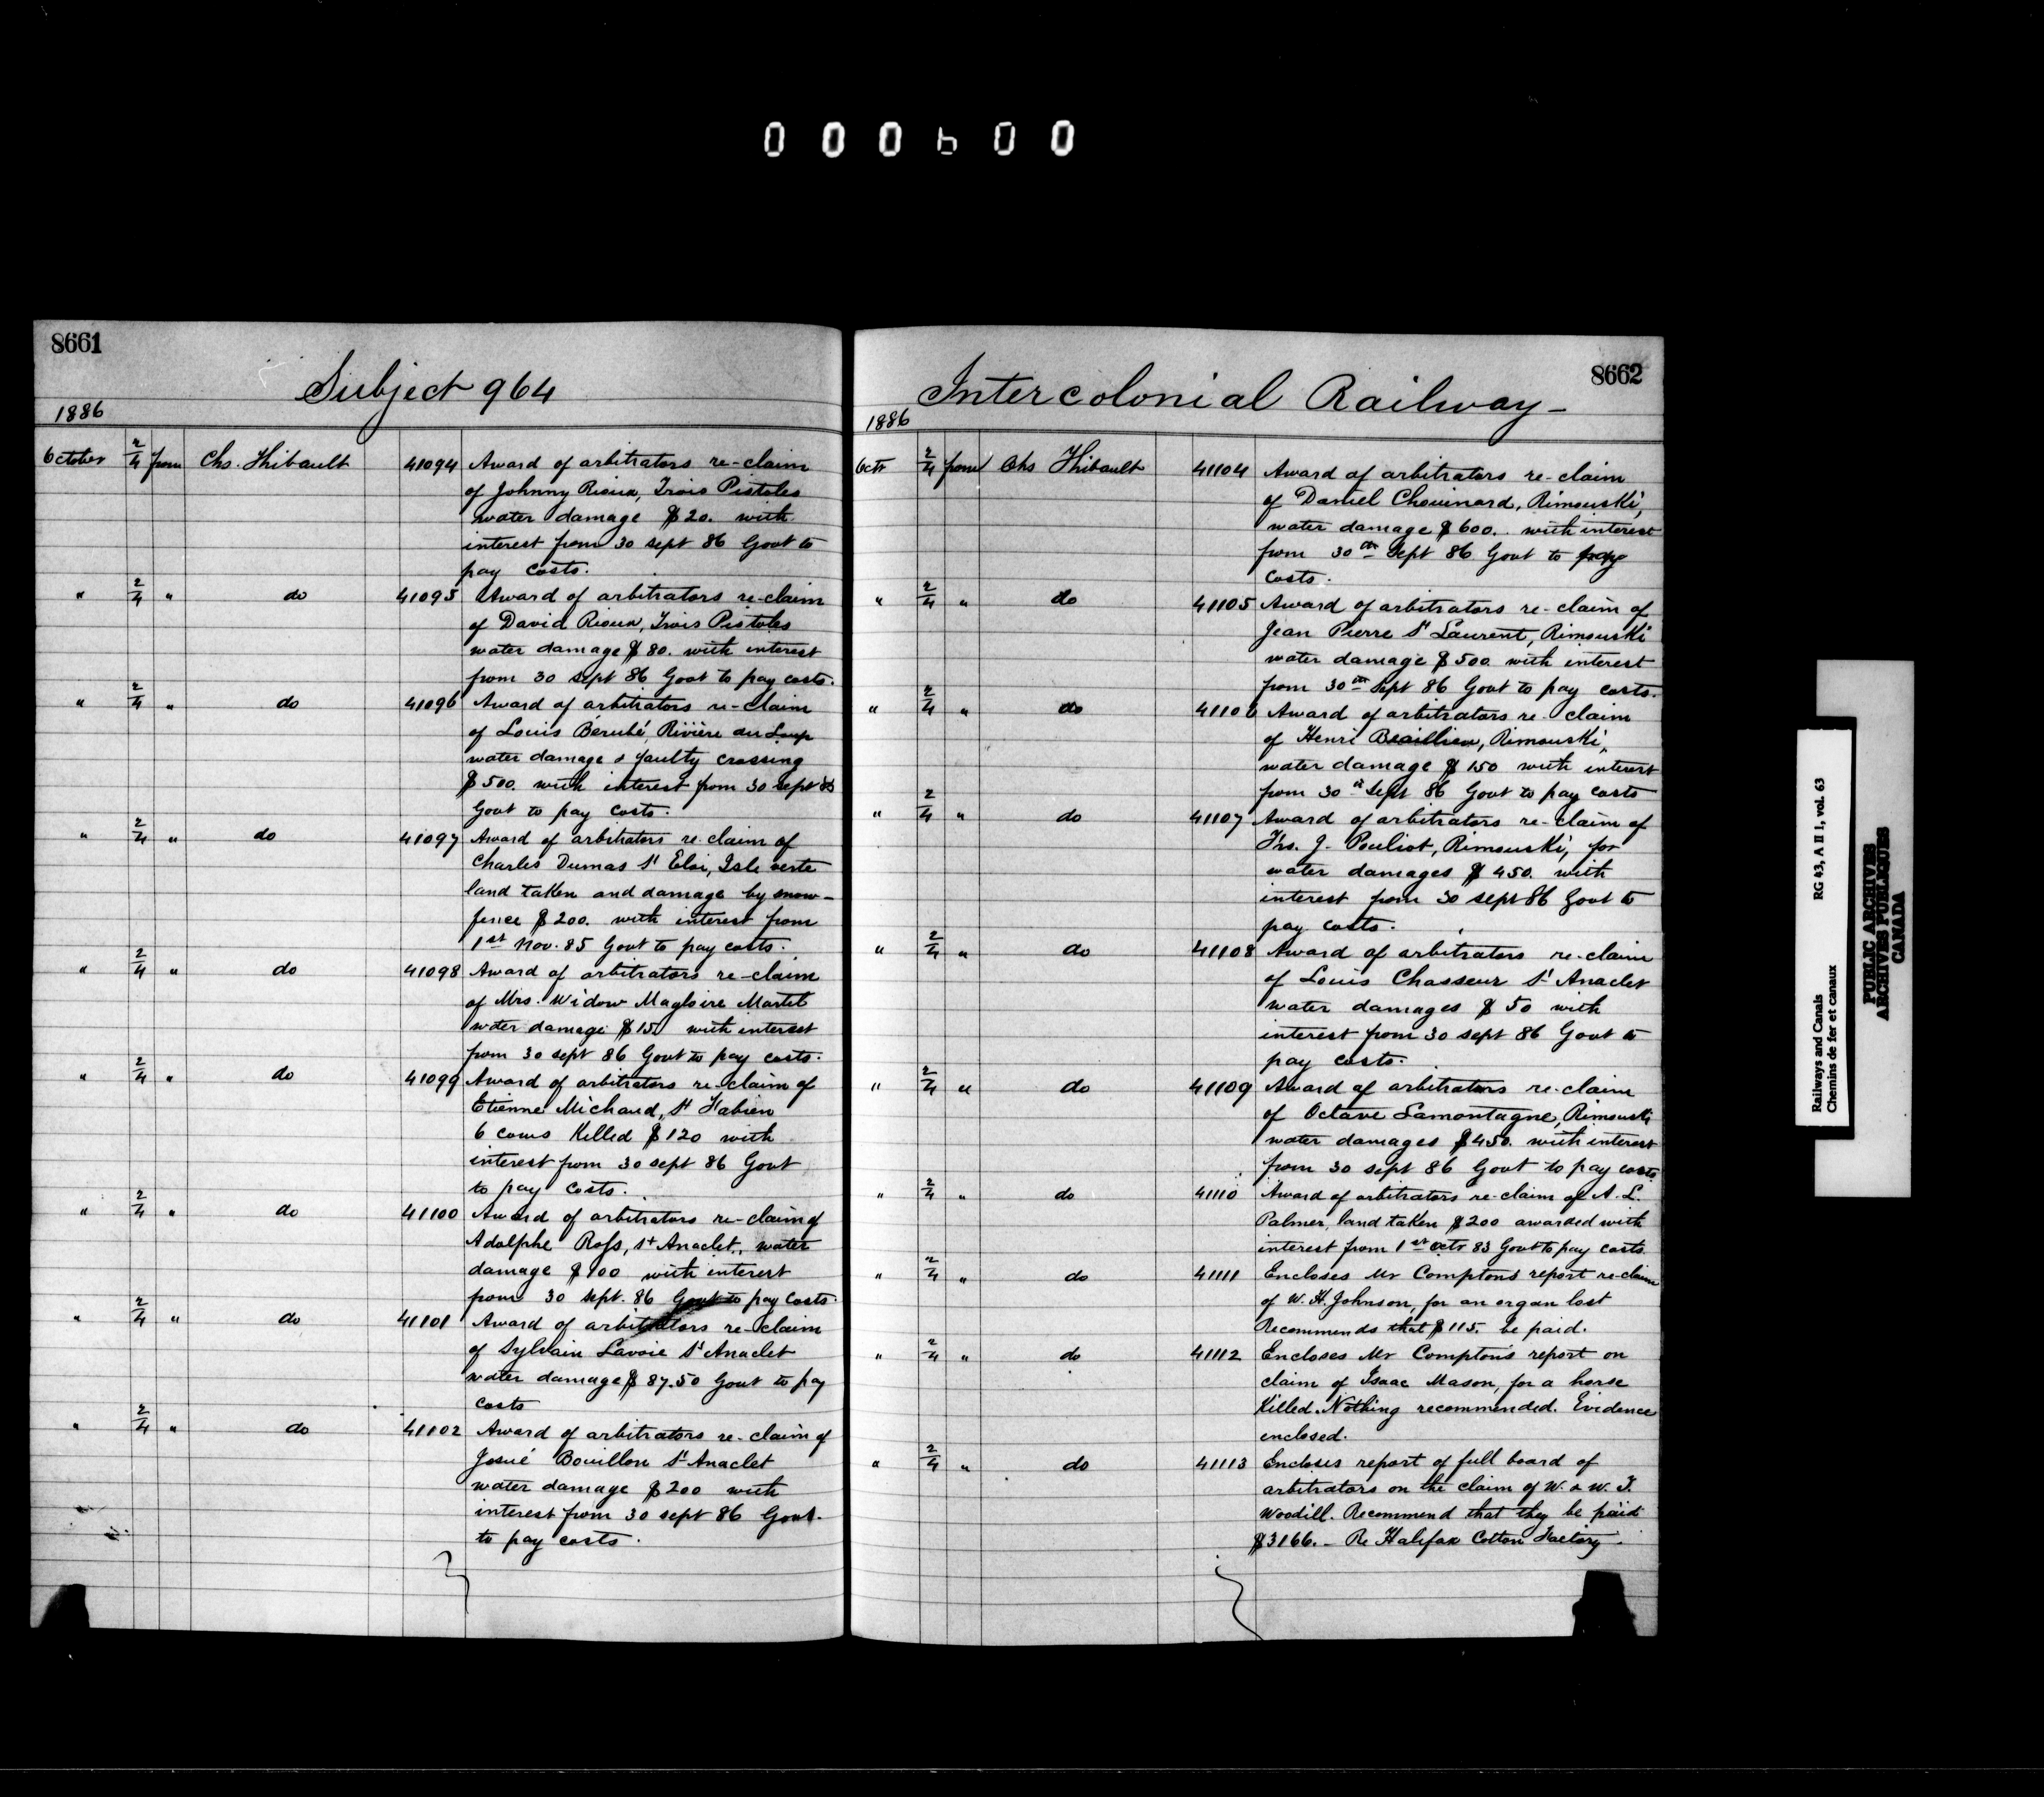 000600
8661
Subject 964
1886
October 2/4 from Chs. Thibault 41094 Award of arbitrators re-claim
of Johnny Rioux, Trois Pistoles
water damage $20. with
interest from 30 sept 86 Govt to
pay costs.
" 2/4 " do 41095 Award of arbitrators re-claim
of David Rioux, Trois Pistoles
water damage $80. with interest
from 30 sept 86 Govt to pay costs.
" 2/4 " do 41096 Award of arbitrators re-claim
of Louis Bérubé, Rivière du Loup
water damage & faulty crossing
$500. with interest from 30 sept
Govt to pay costs.
" 2/4 " do 41097 Award of arbitrators re-claim of
Charles Dumas St Eloi, Isle verte
land taken and damage by snow-
fence $200. with interest from
1st Nov. 85 Govt to pay costs.
" 2/4 " do 41098 Award of arbitrators re-claim
of Mrs. Widow Magloire Martel
water damage $15. with interest
from 30 sept 86 Govt to pay costs.
" 2/4 " do 41099 Award of arbitrators re-claim of
Etienne Michaud, St Fabien
6 cows Killed $120 with
interest from 30 sept 86 Govt
to pay costs.
" 2/4 " do 41100 Award of arbitrators re-claim of
Adolphe Ross, St Anaclet, water
damage $100 with interest
from 30 sept. 86 Govt to pay costs.
" 2/4 " do 41101 Award of arbitrators re-claim
of Sylvain Lavoie St Anaclet
water damage $87.50 Govt to pay
costs
" 2/4 " do 41102 Award of arbitrators re-claim of
Josué Bouillon St Anaclet
water damage $200 with
interest from 30 sept 86 Govt.
to pay costs.
8662
Intercolonial Railway-
1886
Octr 2/4 from Chs Thibault 41104 Award of arbitrators re-claim
of Daniel Chouinard, Rimouski,
water damage $600. with interest
from 30th Sept 86 Govt to pay
costs.
" 2/4 " do 41105 Award of arbitrators re-claim of
Jean Pierre St Laurent, Rimouski
water damage $500. with interest
from 30th Sept 86 Govt to pay costs.
" 2/4 " do 41106 Award of arbitrators re-claim
of Henri Beaillieu, Rimouski,
water damage $150 with interest
from 30th Sept 86 Govt to pay costs
" 2/4 " do 41107 Award of arbitrators re-claim of
Frs. J. Pouliot, Rimouski, for
water damages $450. with
interest from 30 sept 86 Govt to
pay costs.
" 2/4 " do 41108 Award of arbitrators re-claim
of Louis Chasseur St Anaclet
water damages $50 with
interest from 30 sept 86 Govt to
pay costs.
" 2/4 " do 41109 Award of arbitrators re-claim
of Octave Lamontagne, Rimouski
water damages $450. with interest
from 30 sept 86 Govt to pay costs
" 2/4 " do 41110 Award of arbitrators re-claim of A. L.
Palmer, land taken $200 awarded with
interest from 1st Octr 83 Govt to pay costs.
" 2/4 " do 41111 Encloses Mr Compton's report re-claim
of W. H. Johnson, for an organ lost
Recommends that $115. be paid.
" 2/4 " do 41112 Encloses Mr Compton's report on
claim of Isaac Mason, for a horse
Killed. Nothing recommended. Evidence
enclosed.
" 2/4 " do 41113 Encloses report of full board of
arbitrators on the claim of W. & W. T.
Woodill. Recommend that they be paid
$3166. - Re Halifax Cotton Factory.
Railways and Canals RG 43, A II 1, vol. 63
Chemins de fer et canaux
PUBLIC ARCHIVES
ARCHIVES PUBLIQUES
CANADA